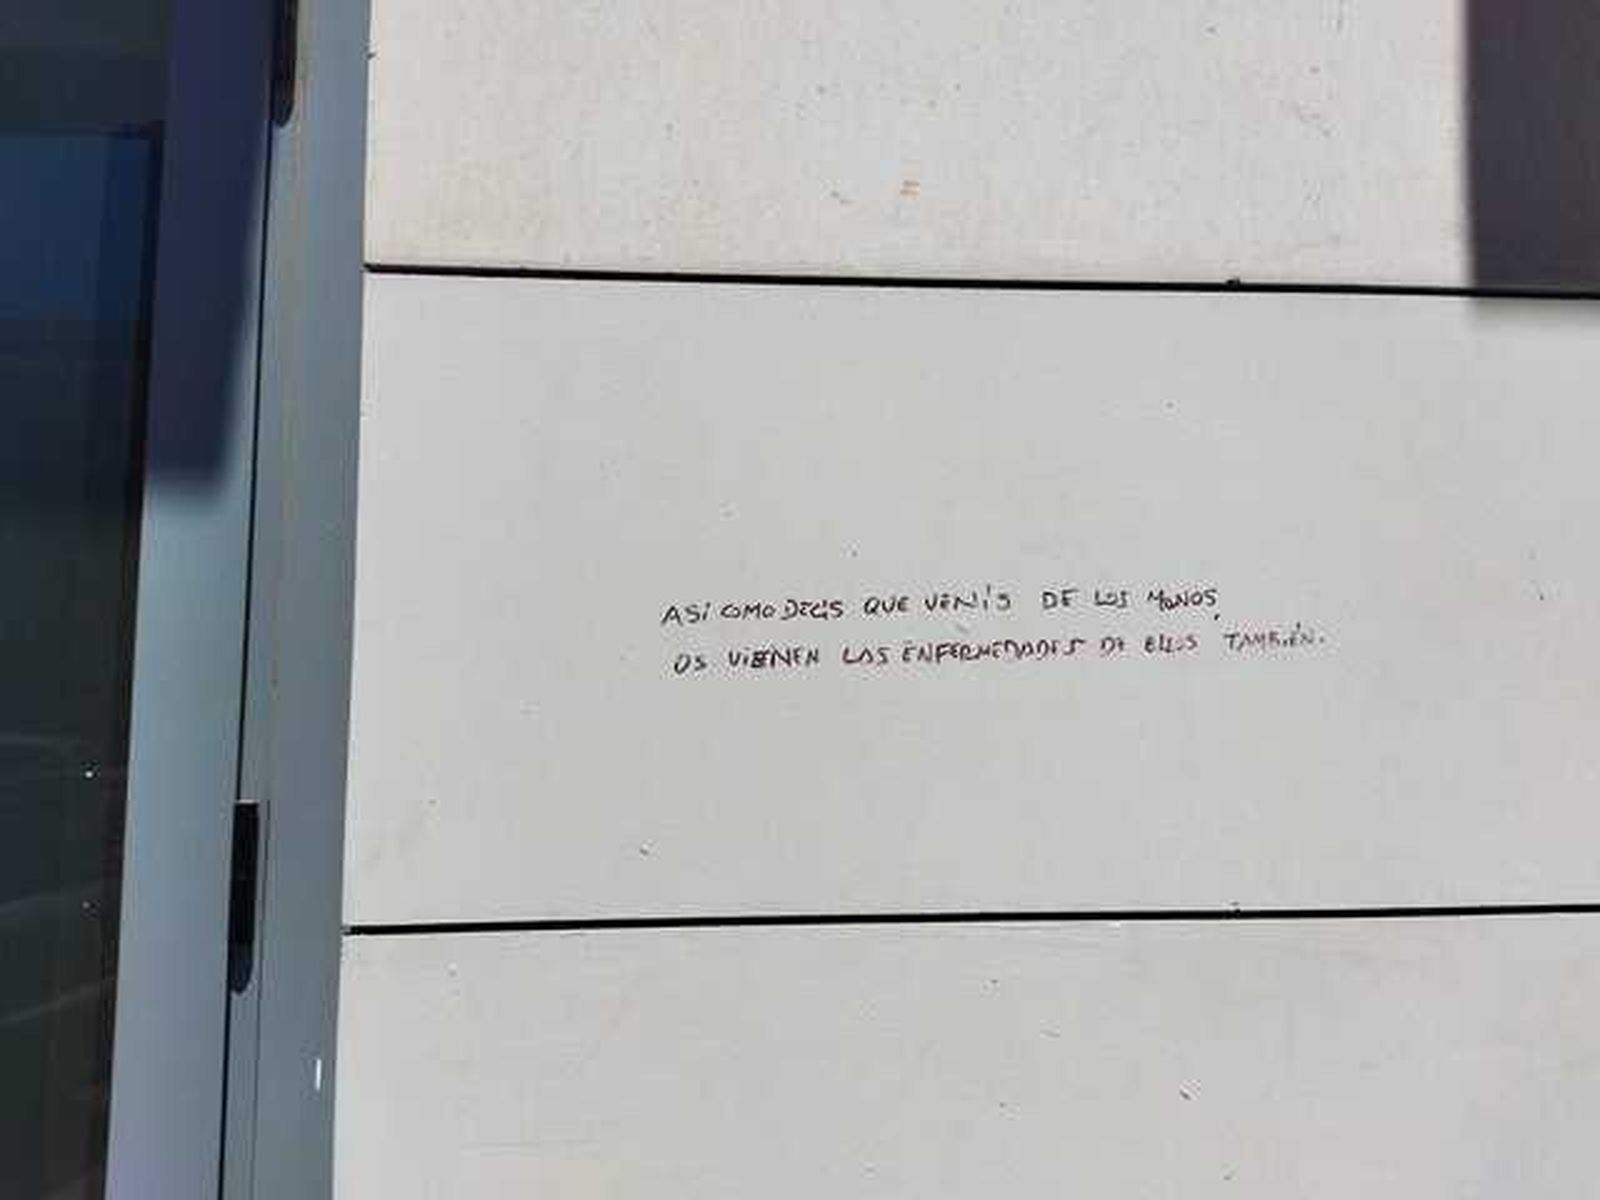 ASÍ COMO DECÍS QUE VENÍS DE LOS MONOS,
OS VIENEN LAS ENFERMEDADES DE ELLOS TAMBIÉN.